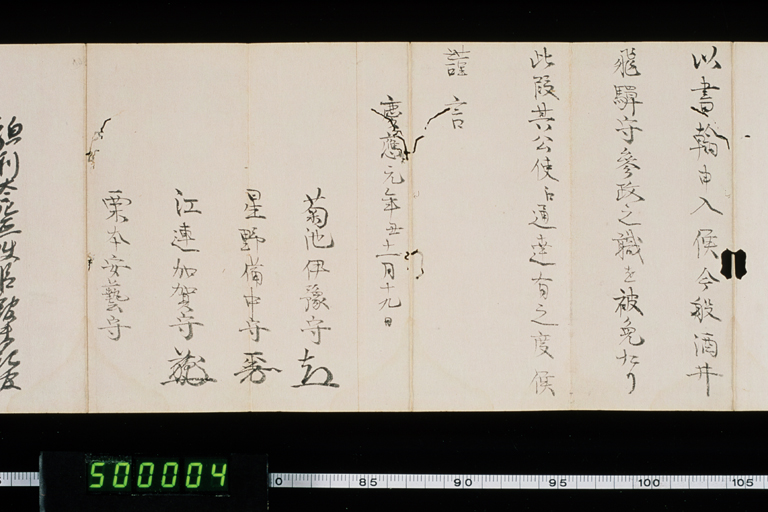 以書翰申入候今般酒井
飛驒守參政之職を被免たり
此段其公使江通達有之度候
謹言
慶應元年丑十一月十九日
菊池伊豫守
星野備中守
江連加賀守
栗本安藝守
500004
0 85 90 95 100 105